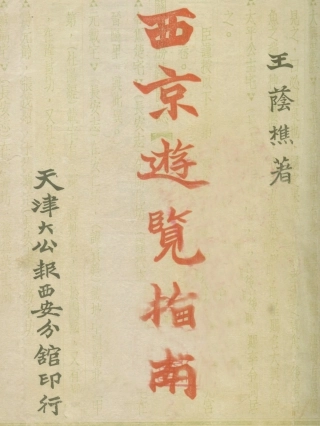 王蔭樵著
西京遊覽指南
天津大公報西安分館印行